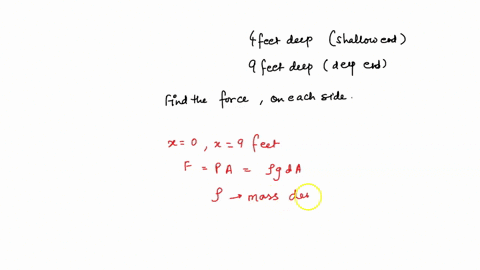 4 feet deep (shallow end)
9 feet deep (deep end)
Find the force, on each side.
x=0, x=9 feet
F = PA = ρgdA
ρ → mass des